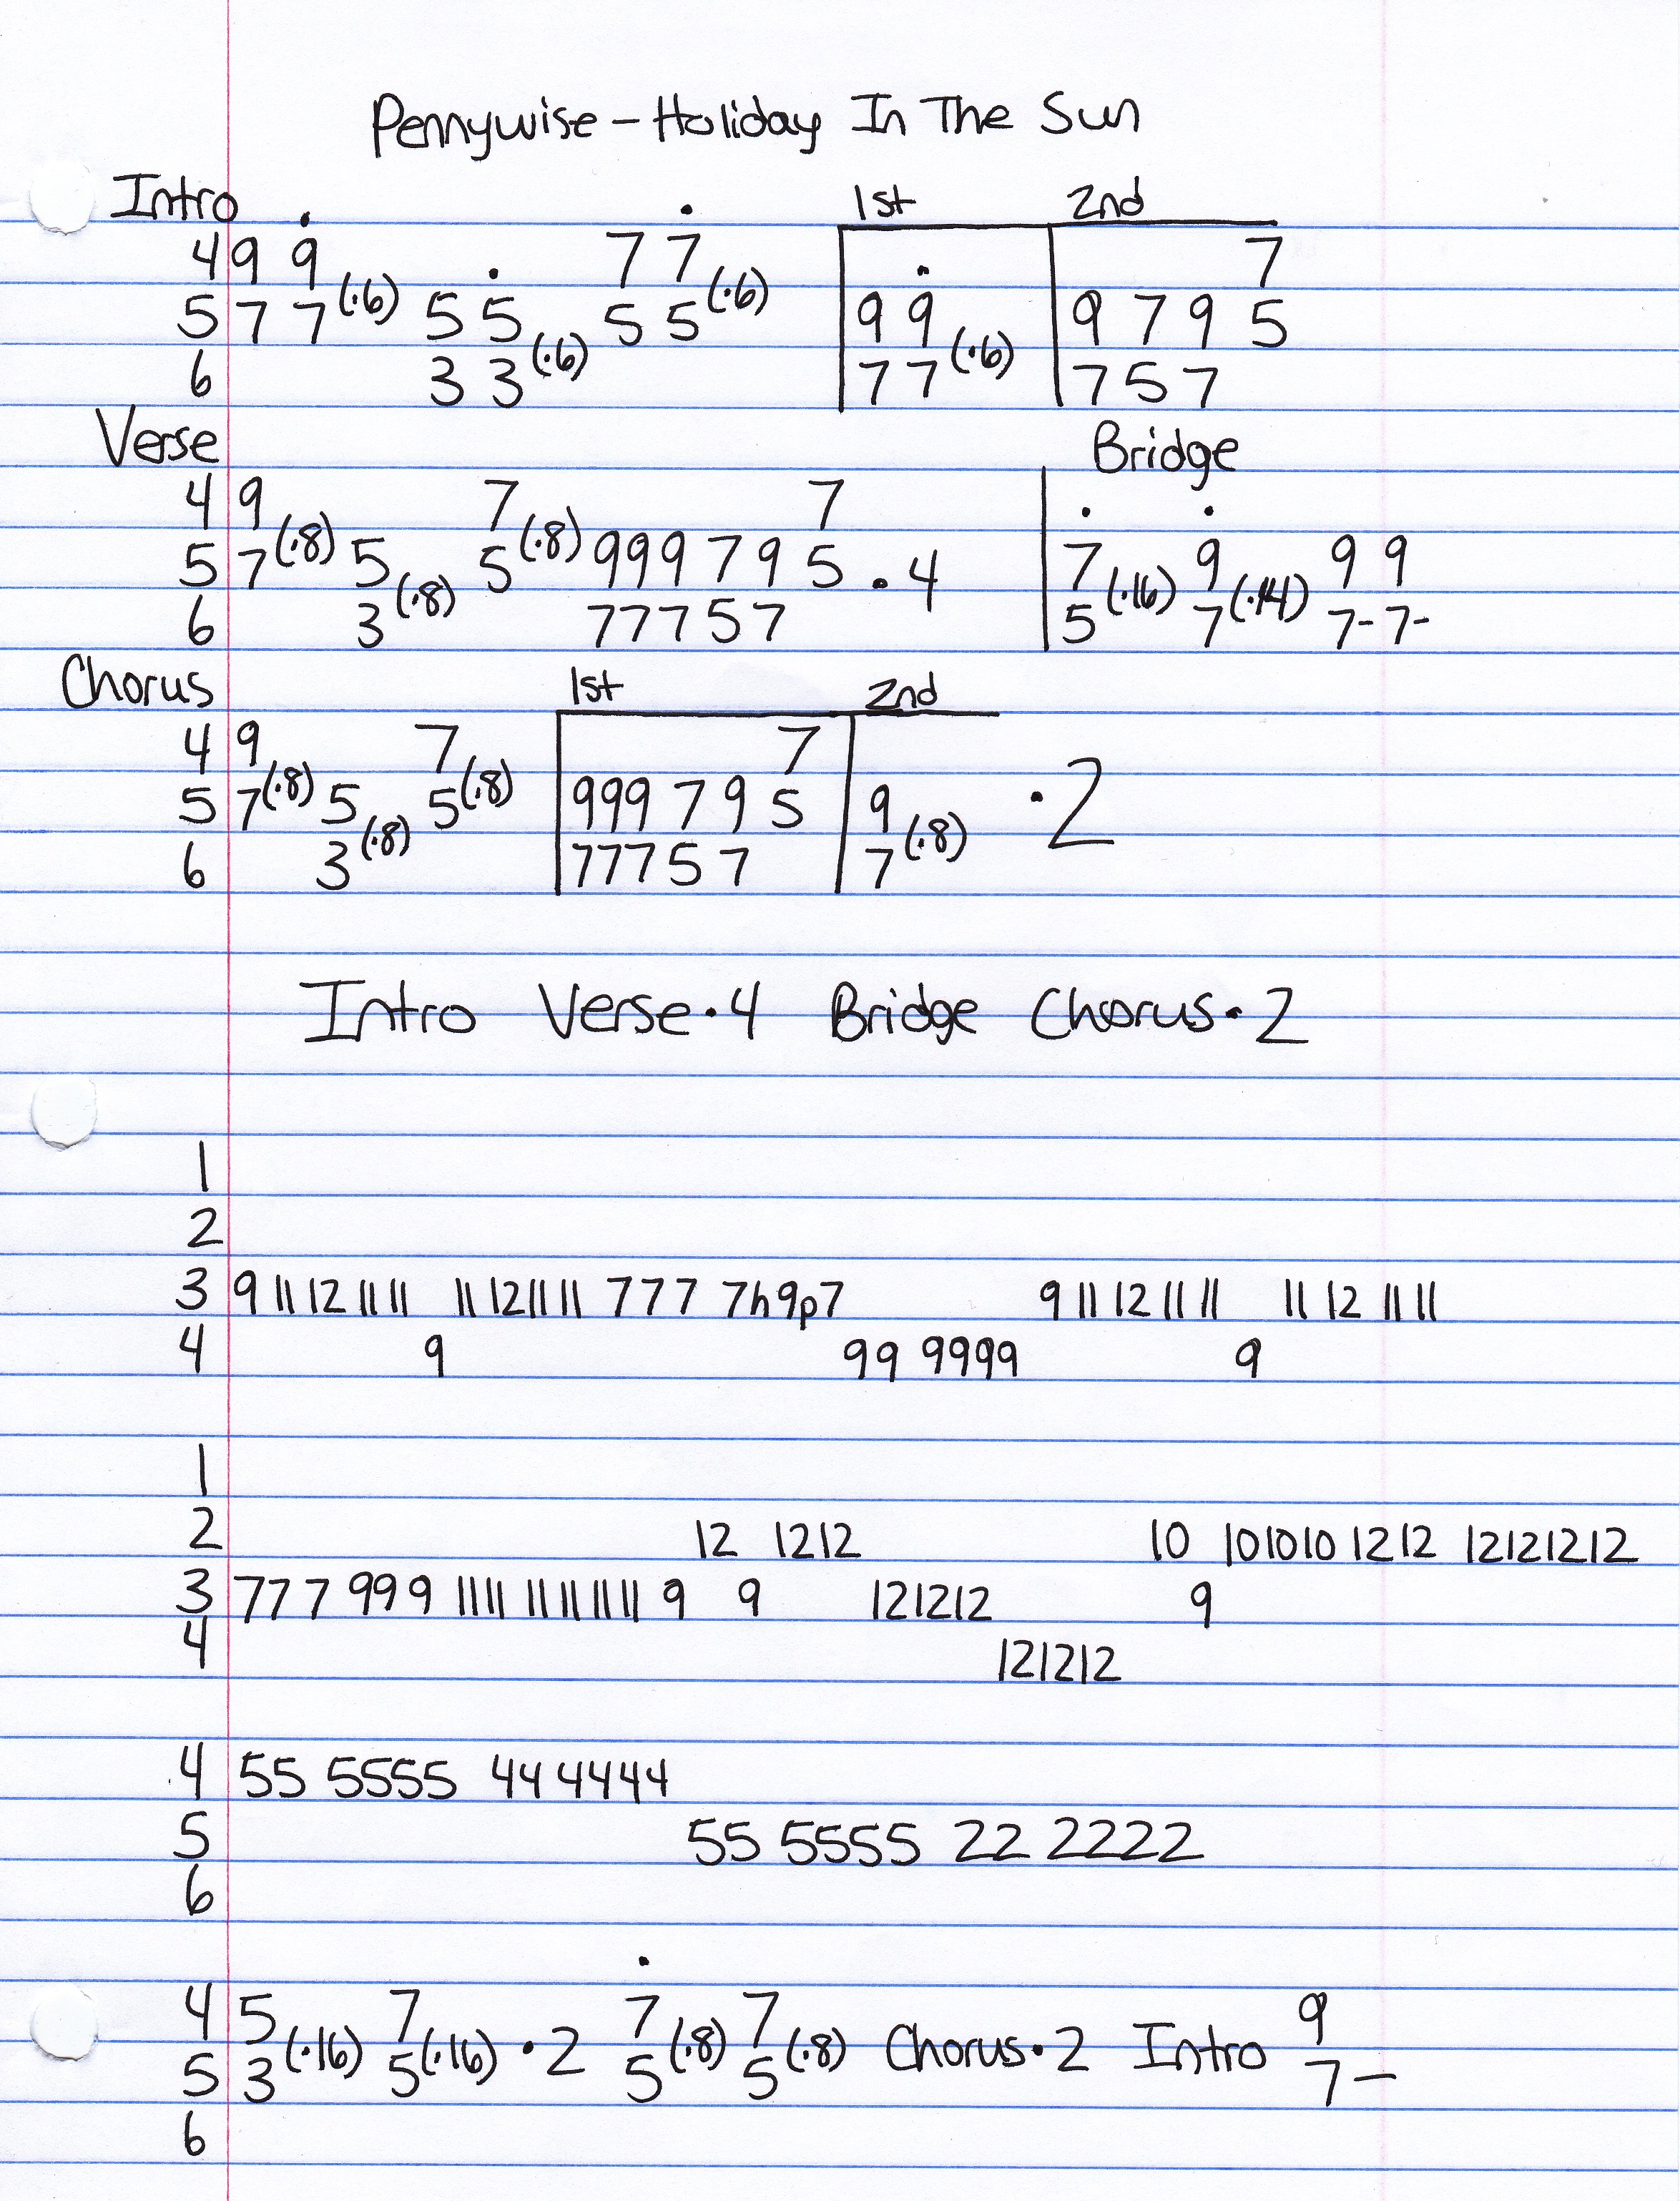 Pennywise - Holiday In The Sun
Intro . . 1st 2nd
4 9 9 . 7 7 . 7
5 7 7 (·6) 5 5 5 5 (·6) 9 9 9 7 9 5
6 3 3 (·6) 7 7 (·6) 7 5 7
Verse Bridge
4 9 7 7 . .
5 7 (·8) 5 5 (·8) 9 9 9 7 9 5 · 4 7 9 9 9
6 3 (·8) 7 7 7 5 7 5 (·16) 7 (·14) 7- 7-
Chorus 1st 2nd
4 9 7 7
5 7 (·8) 5 5 (·8) 9 9 9 7 9 5 9 · 2
6 3 (·8) 7 7 7 5 7 7 (·8)
Intro Verse · 4 Bridge Chorus · 2
1
2
3 9 11 12 11 11 11 12 11 11 7 7 7 7h9p7 9 11 12 11 11 11 12 11 11
4 9 99 9999 9
1
2 12 1212 10 101010 1212 12121212
3 77 7 99 9 1111 11111111 9 9 121212 9
4 121212
4 55 5555 44 4444
5 55 5555 22 2222
6
.
4 5 7 7 7 9
5 3 (·16) 5 (·16) · 2 5 (·8) 5 (·8) Chorus · 2 Intro 7 -
6